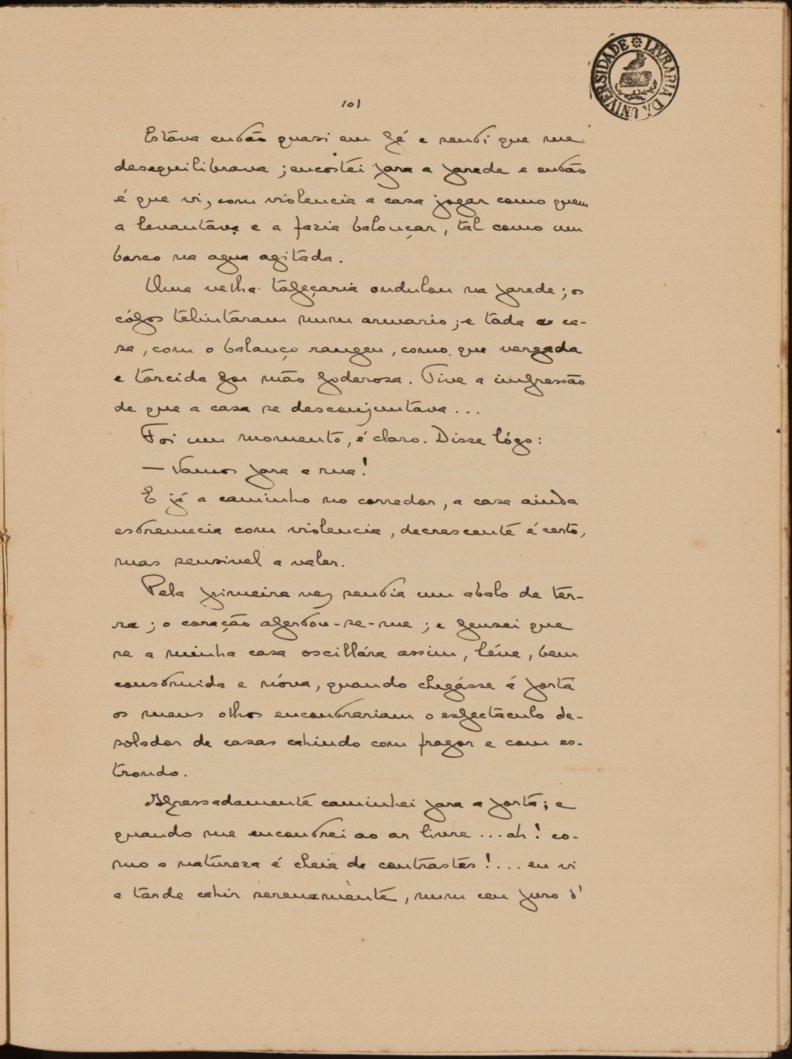 LIVRARIA DA UNIVERSIDADE
101
Estava então quasi em pé e senti que me
desequilibrava; encostei para a parede e então
é que vi, com violencia a casa jogar como quem
a levantáva e a fazia balouçar, tal como um
barco na agua agitada.
Uma velha tapeçaria ondulou na parede; os
cópos telintáram num armario; e toda a ca-
sa, com o balanço rangeu, como que vergada
e torcida por mão poderosa. Tive a impressão
de que a casa se desconjuntava...
Foi um momento, é claro. Disse lógo:
— Vamos para a rua!
E já a caminho no corredor, a casa ainda
estremecia com violencia, decrescente é certo,
mas sensivel a valer.
Pela primeira vez sentia um abalo de ter-
ra; o coração apertou-se-me; e pensei que
se a minha casa oscillára assim, léve, bem
construida e nóva, quando chegásse á porta
os meus olhos encontrariam o espectaculo de-
solador de casas cahindo com fragor e com es-
trondo.
Apressadamente caminhei para a porta; e
quando me encontrei ao ar livre... ah! co-
mo a natureza é cheia de contrastes!... eu vi
a tarde cahir serenamente, num ceu puro d'